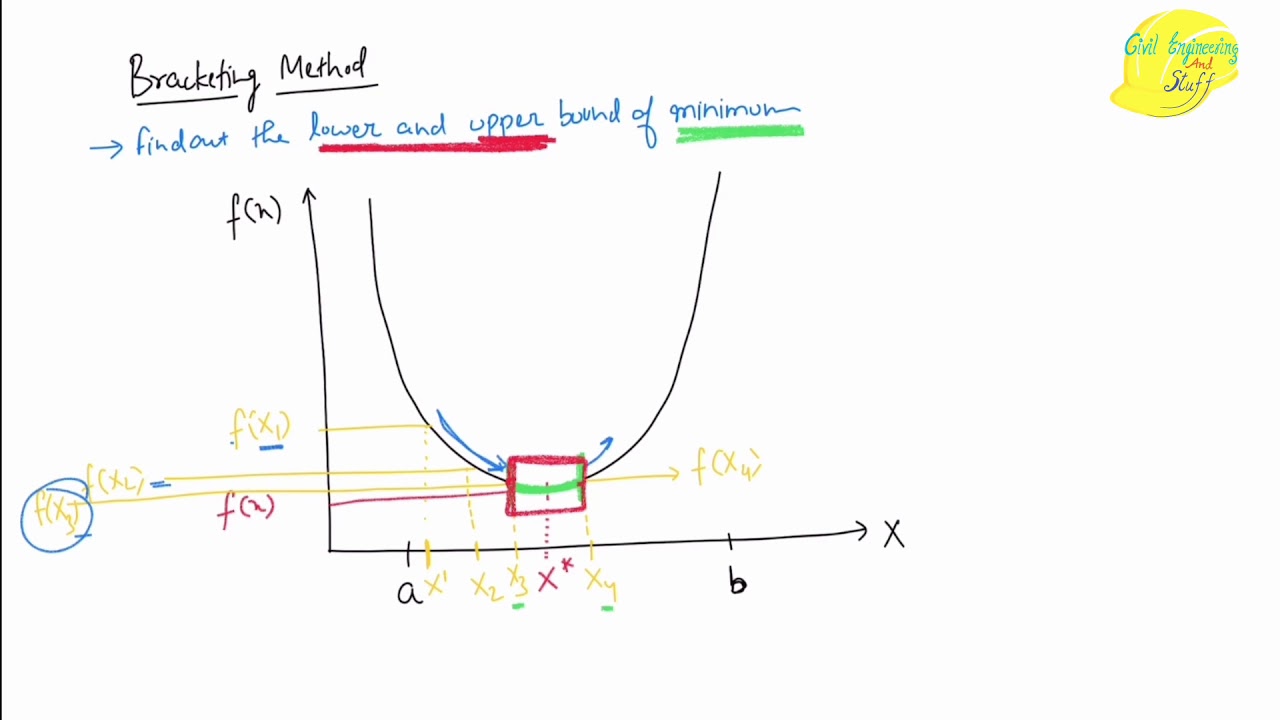 Bracketing Method
Civil Engineering
And
Stuff
→ findout the lower and upper bound of minimum
f(x)
f(x₁)
f(x₂)
f(x₃)
f(x)
f(x₄)
X
a x' x₂ x₃ x* x₄ b